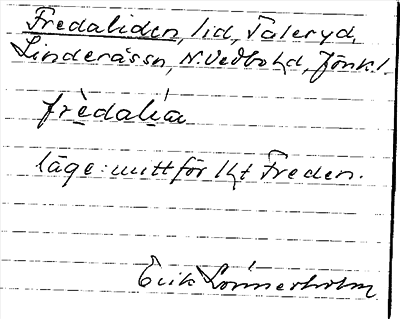 Fredaliden, lid, Taleryd,
Linderåssn, N. Vedbo hd, Jönk l.
frèdalía
läge: mitt för lht Freden.
Erik Lönnerholm